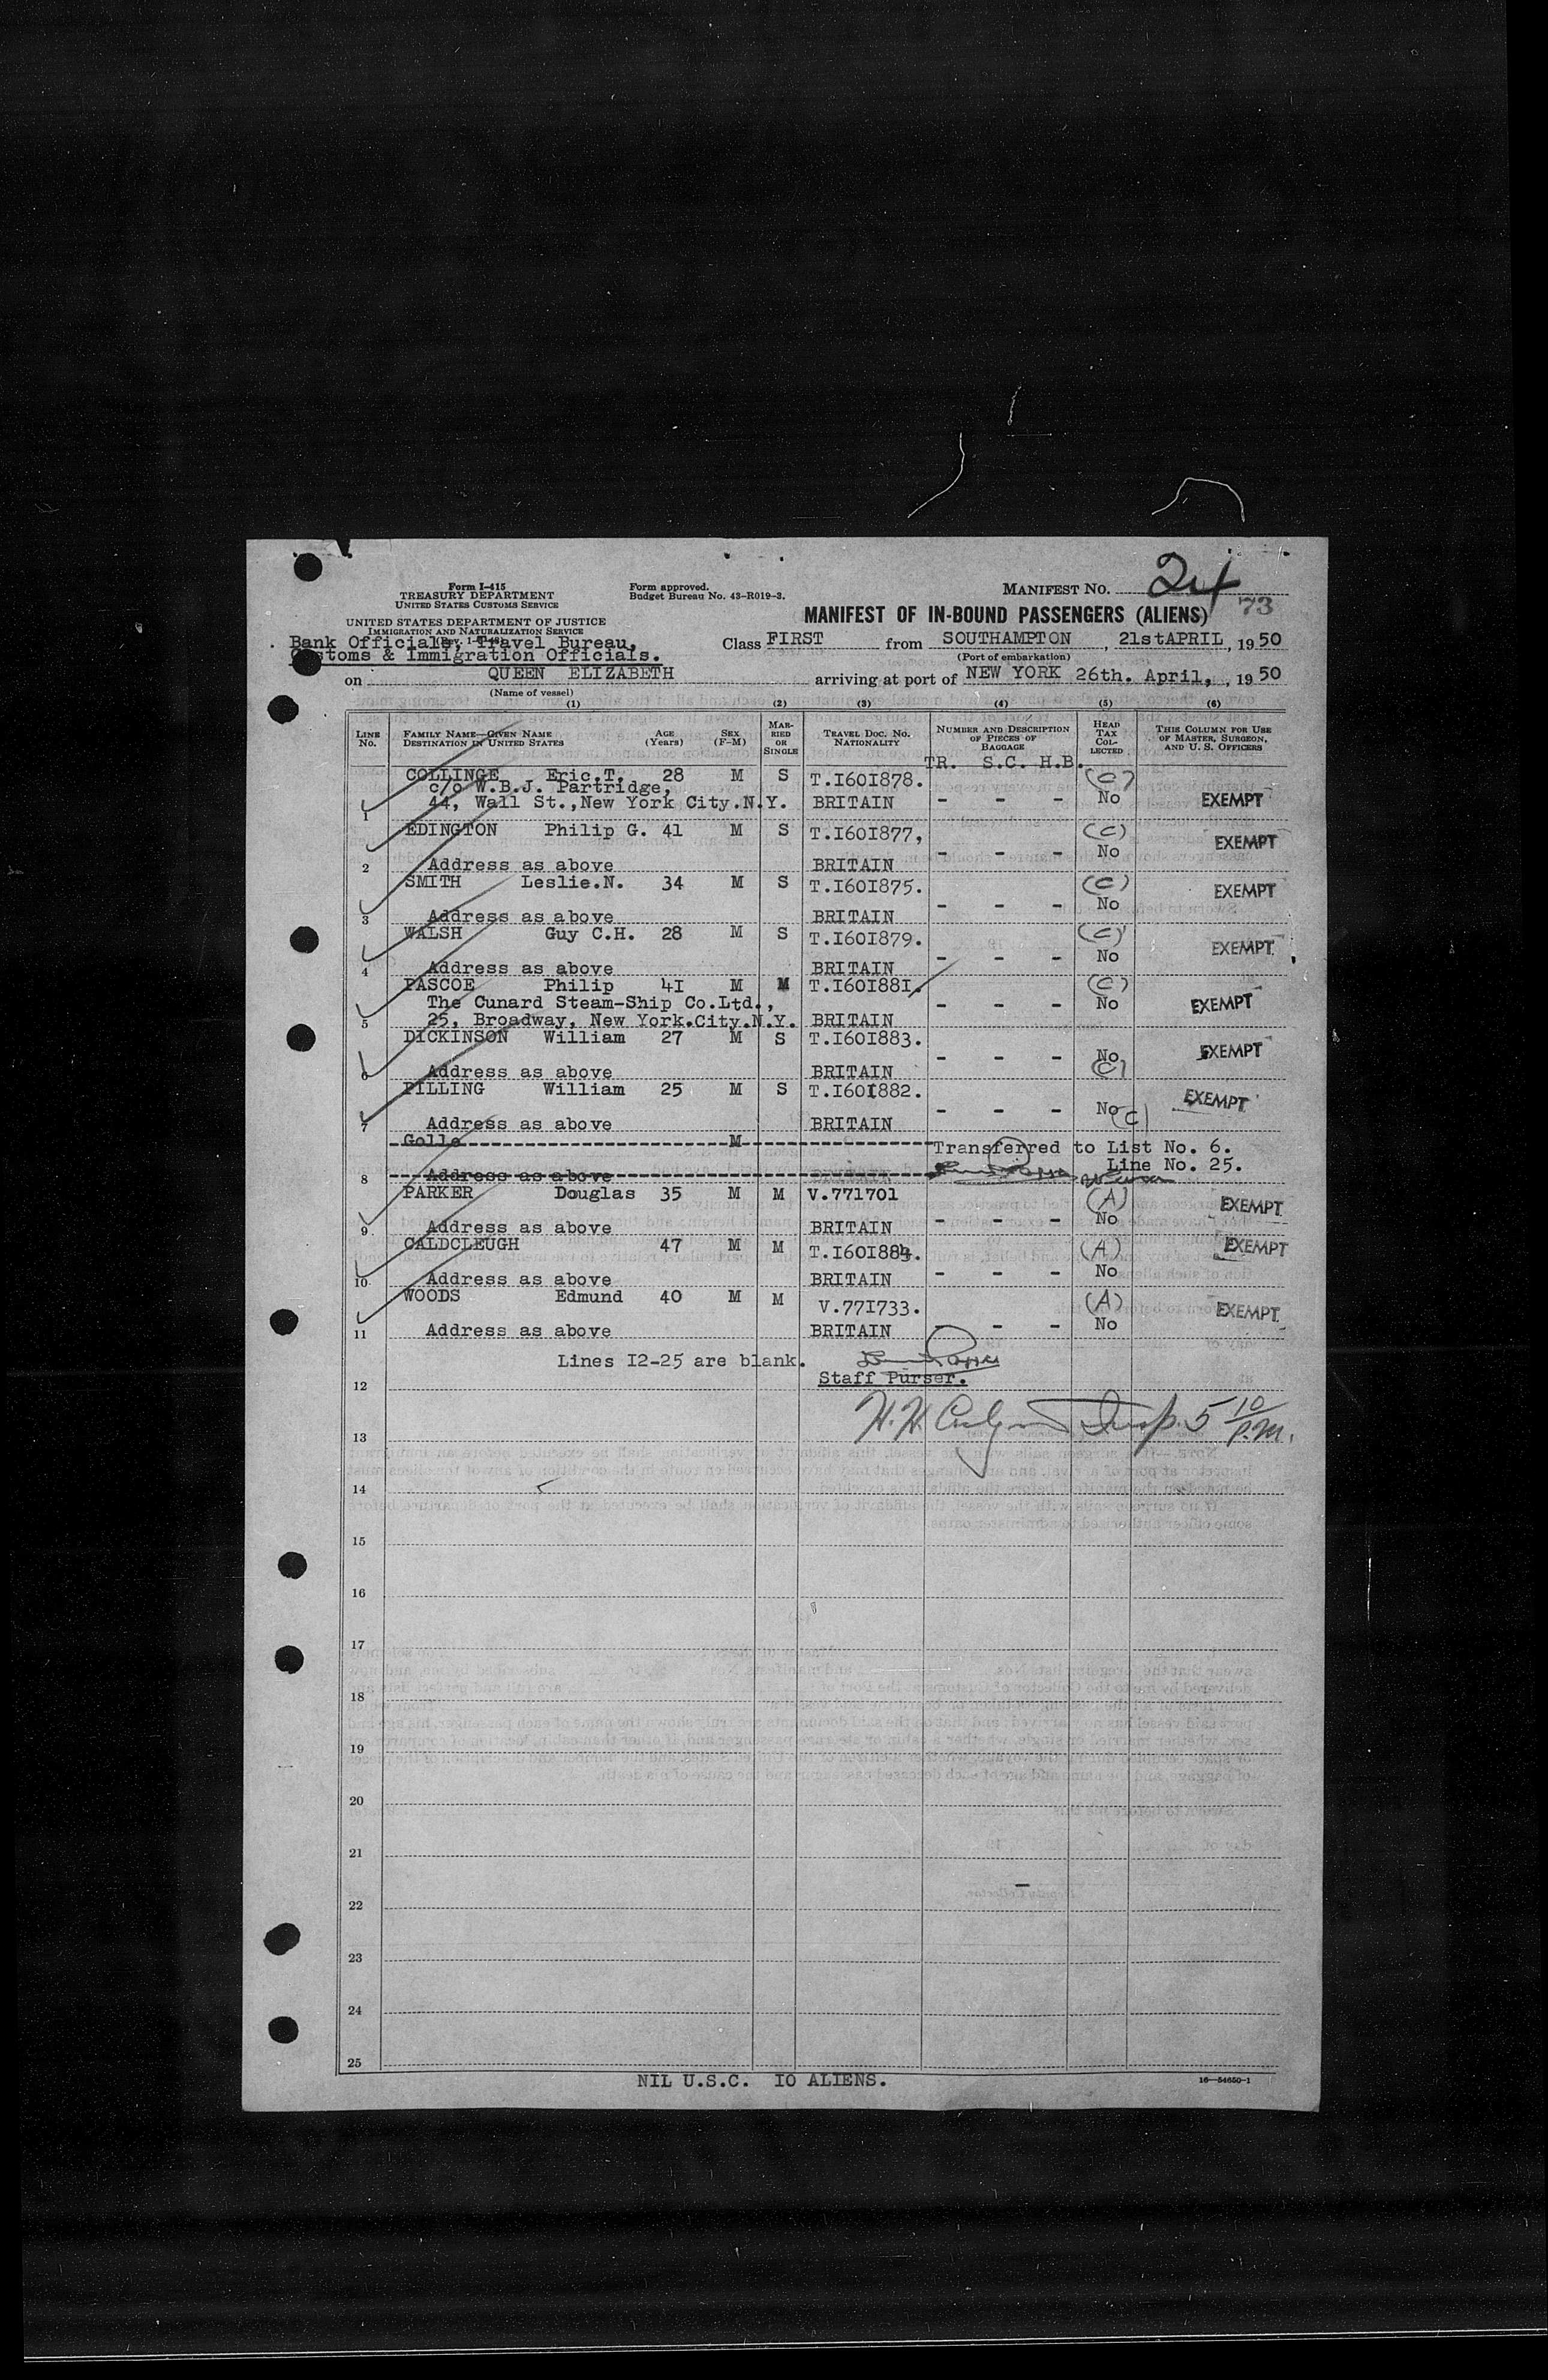 Form I-415
TREASURY DEPARTMENT
UNITED STATES CUSTOMS SERVICE
Form approved.
Budget Bureau No. 43-R019-3.
MANIFEST NO. 24
MANIFEST OF IN-BOUND PASSENGERS (ALIENS) 73
UNITED STATES DEPARTMENT OF JUSTICE
IMMIGRATION AND NATURALIZATION SERVICE
Bank Officials, Travel Bureau,
Customs & Immigration Officials.
Class FIRST from SOUTHAMPTON, 21stAPRIL, 1950
(Port of embarkation)
on QUEEN ELIZABETH arriving at port of NEW YORK 26th. April, , 1950
(Name of vessel)
(1) (2) (3) (4) (5) (6)
LINE No. FAMILY NAME—GIVEN NAME DESTINATION IN UNITED STATES AGE (Years) SEX (F-M) MARRIED OR SINGLE TRAVEL DOC. NO. NATIONALITY NUMBER AND DESCRIPTION OF PIECES OF BAGGAGE HEAD TAX COLLECTED THIS COLUMN FOR USE OF MASTER, SURGEON, AND U. S. OFFICERS
TR. S.C. H.B.
COLLINGE Eric.T. 28 M S T.I60I878. (C)
c/o W.B.J. Partridge,
1 44, Wall St.,New York City.N.Y. BRITAIN - - - No EXEMPT
EDINGTON Philip G. 41 M S T.I60I877, (C)
2 Address as above BRITAIN - - - No EXEMPT
SMITH Leslie.N. 34 M S T.I60I875. (C)
3 Address as above BRITAIN - - - No EXEMPT
WALSH Guy C.H. 28 M S T.I60I879. (C)
4 Address as above BRITAIN - - - No EXEMPT
PASCOE Philip 4I M M T.I60I88I. (C)
The Cunard Steam-Ship Co.Ltd., - - - No EXEMPT
5 25, Broadway, New York.City.N.Y. BRITAIN
DICKINSON William 27 M S T.I60I883.
6 Address as above BRITAIN - - - No (C) EXEMPT
PILLING William 25 M S T.I60I882.
7 Address as above BRITAIN - - - No (C) EXEMPT
M Transferred to List No. 6.
Line No. 25.
8 Address as above
PARKER Douglas 35 M M V.771701 (A)
9 Address as above BRITAIN - - - No EXEMPT
CALDCLEUGH 47 M M T.I60I884. (A)
10 Address as above BRITAIN - - - No EXEMPT
WOODS Edmund 40 M M V.77I733. (A)
11 Address as above BRITAIN - - - No EXEMPT
Lines I2-25 are blank.
Staff Purser.
12
H.H. Insp. 5 10/P.M.
13
14
15
16
17
18
19
20
21
22
23
24
25
NIL U.S.C. IO ALIENS.
16—54650-1